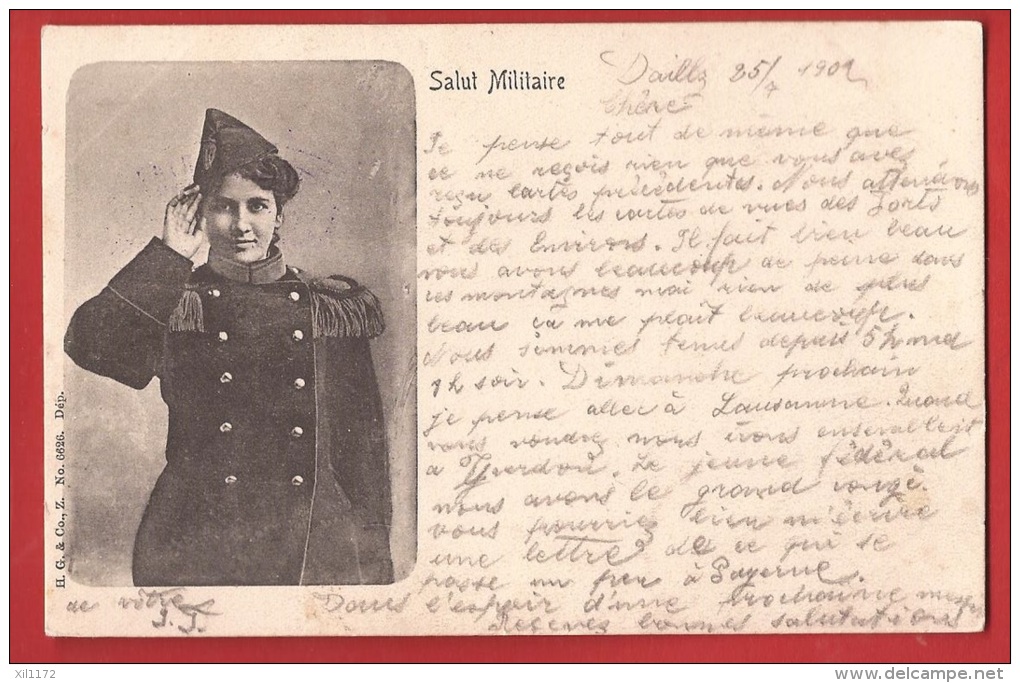 Salut Militaire
Dailly 25/7 1902
Chère
Je pense tout de même que
ce ne reçois rien que vous avez
reçu cartes précédentes. Nous attendons
toujours les cartes de vues des Forts
et des Environs. Il fait bien beau
nous avons beaucoup de peine dans
ces montagnes mai rien de plus
beau ça me plait beaucoup.
Nous sommes tenus depuis 5 h
9h soir. Dimanche prochain
je pense aller à Lausanne. Quand
vous voudrez nous irons
a Yverdon. Le jeune fédéral
nous avons le grand congé.
vous pourriez bien m'écrire
une lettre de ce qui se
passe un peu à Payerne.
Dans l'espoir d'une prochaine
Recevez bonnes salutations
de vôtre
J. J.
H. G. & Co., Z. No. 6626. Dép.
xil1172
delcampe.net